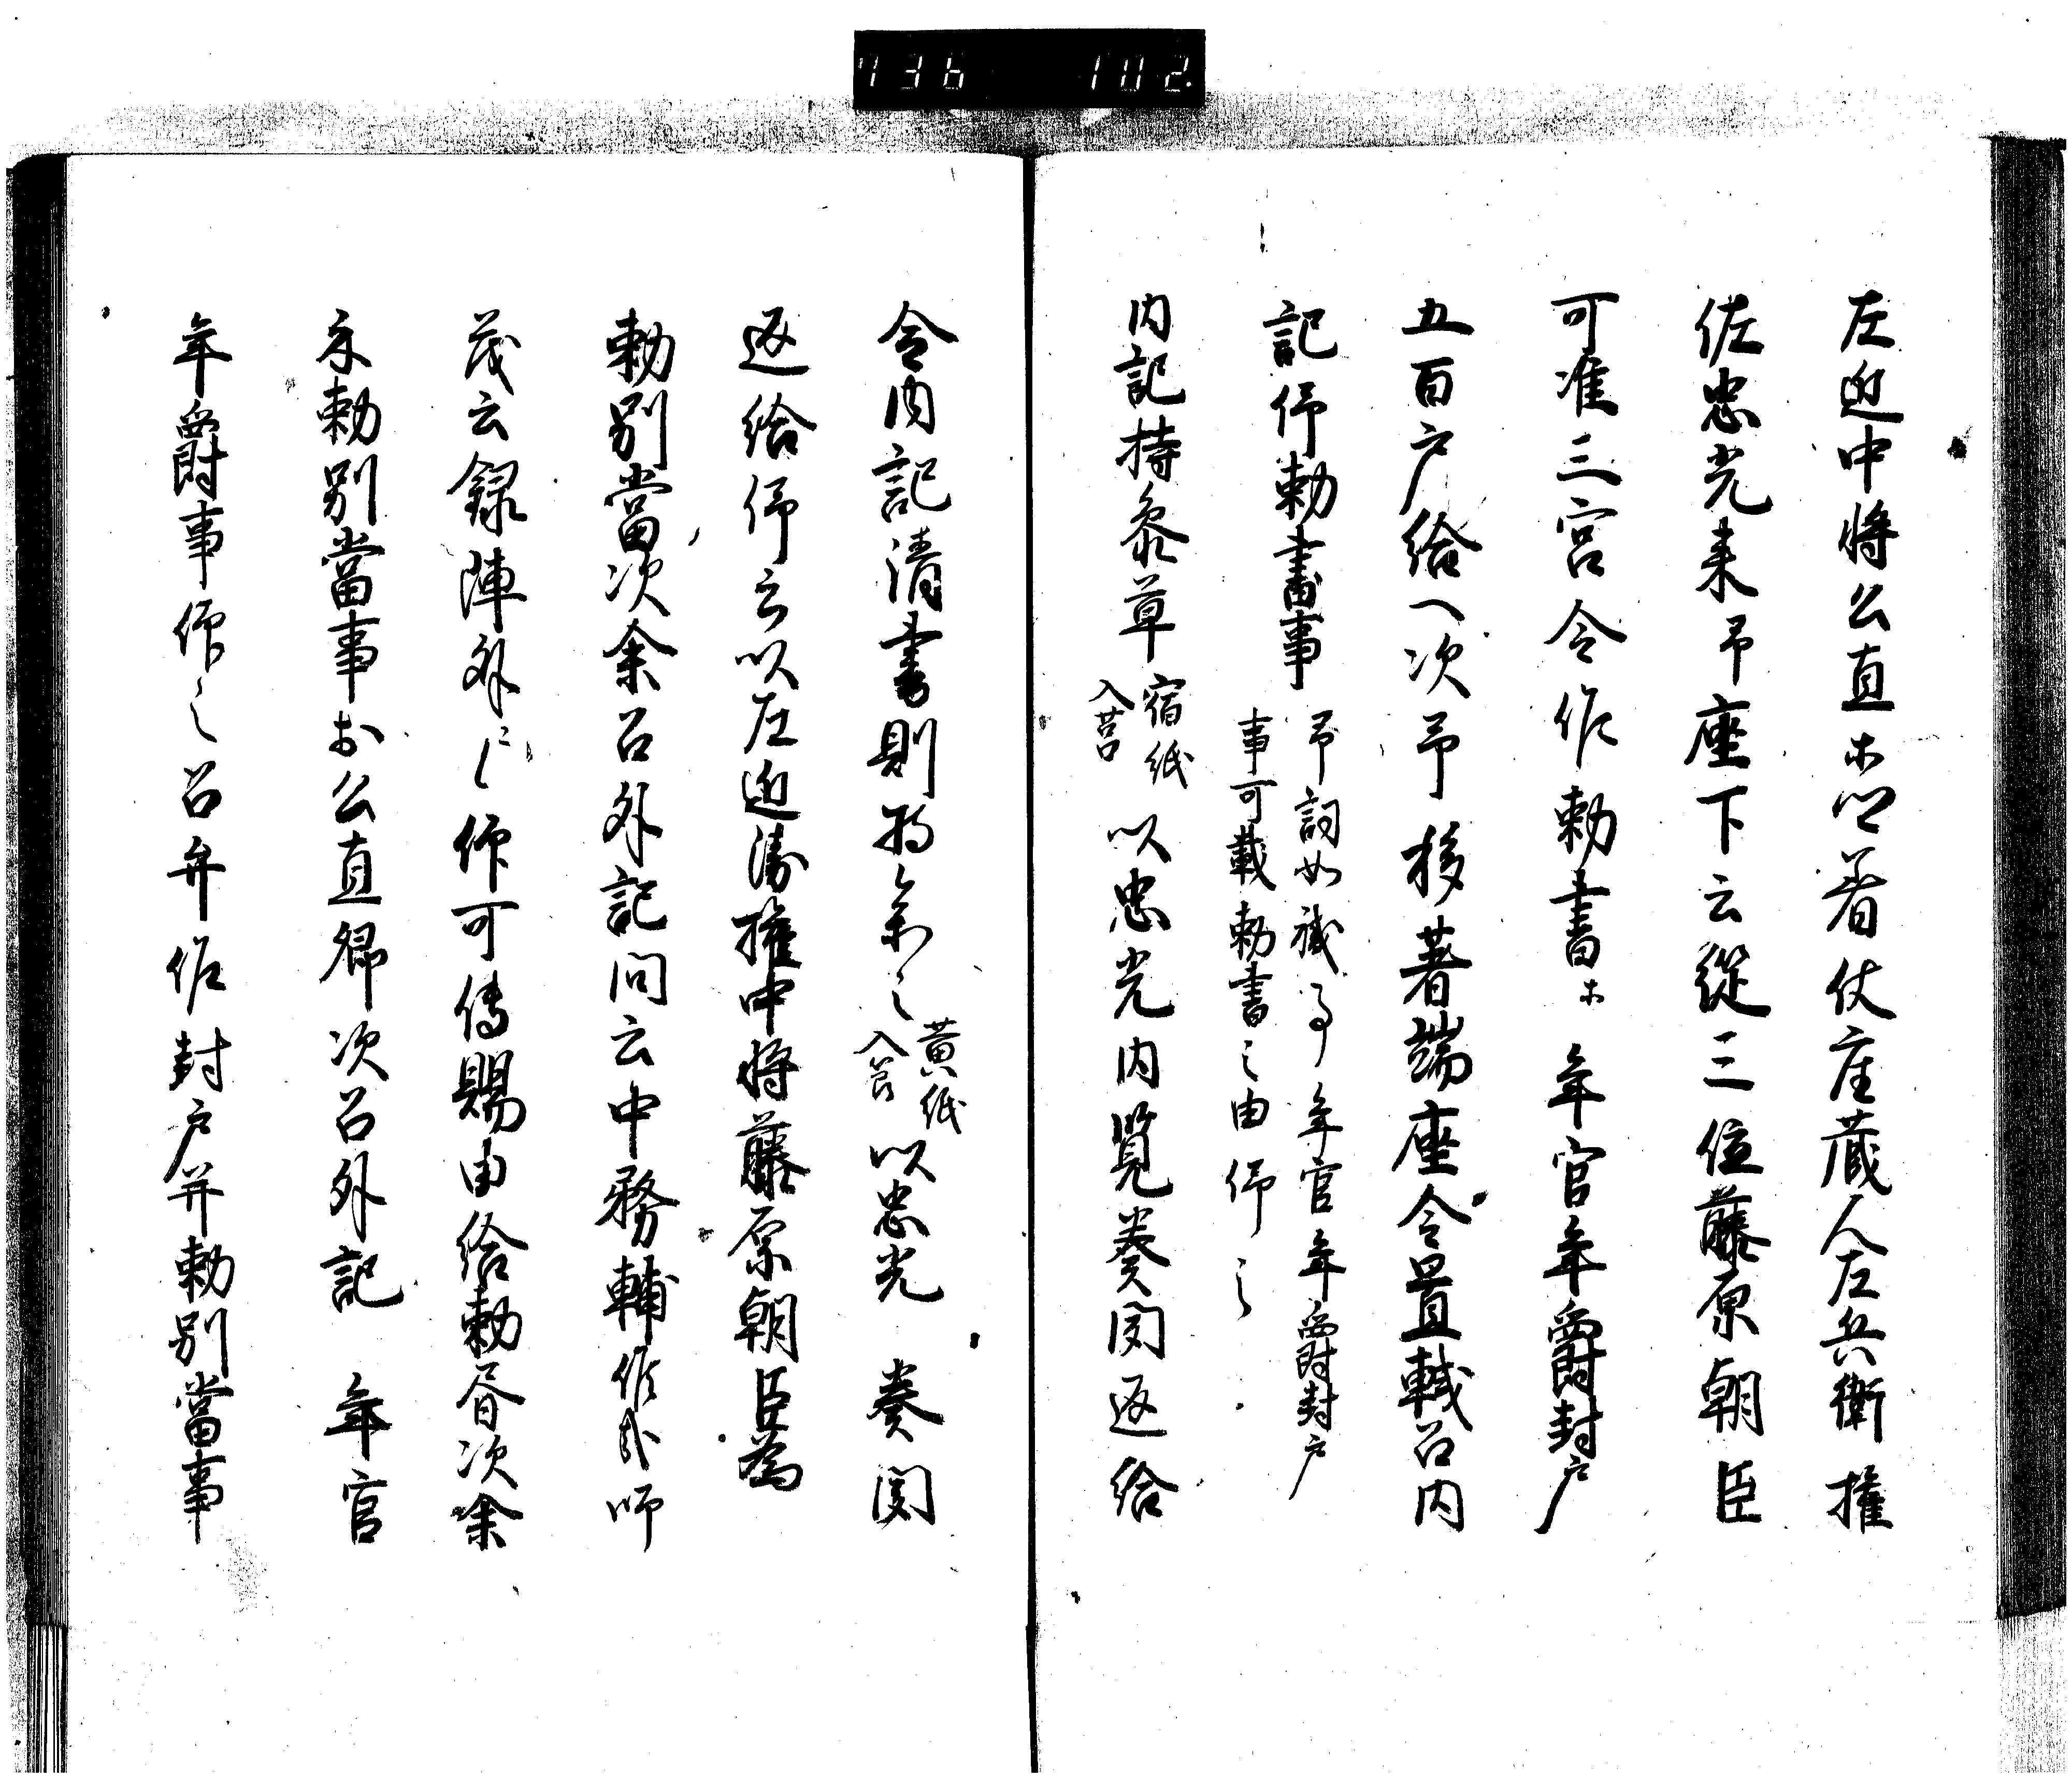 736 102
左近中将公直等卿着仗座蔵人左兵衛権
佐忠光来予座下云従三位藤原朝臣
可准三宮令作勅書等年官年爵封戸
五百戸給へ次予移著端座令置軾召内
記仰勅書事
予詞如職事年官年爵封戸
事可載勅書之由仰之
内記持参草
宿紙
入筥
以忠光内覧奏聞返給
令内記清書則持参之
黄紙
入筥
以忠光 奏聞
返給仰云以左近衛権中将藤原朝臣為
勅別當次余召外記問云中務輔作代師
茂云録陣外ニ候可傳賜由給勅書次余
示勅別當事於公直卿次召外記 年官
年爵事仰之召弁仰封戸并勅別當事